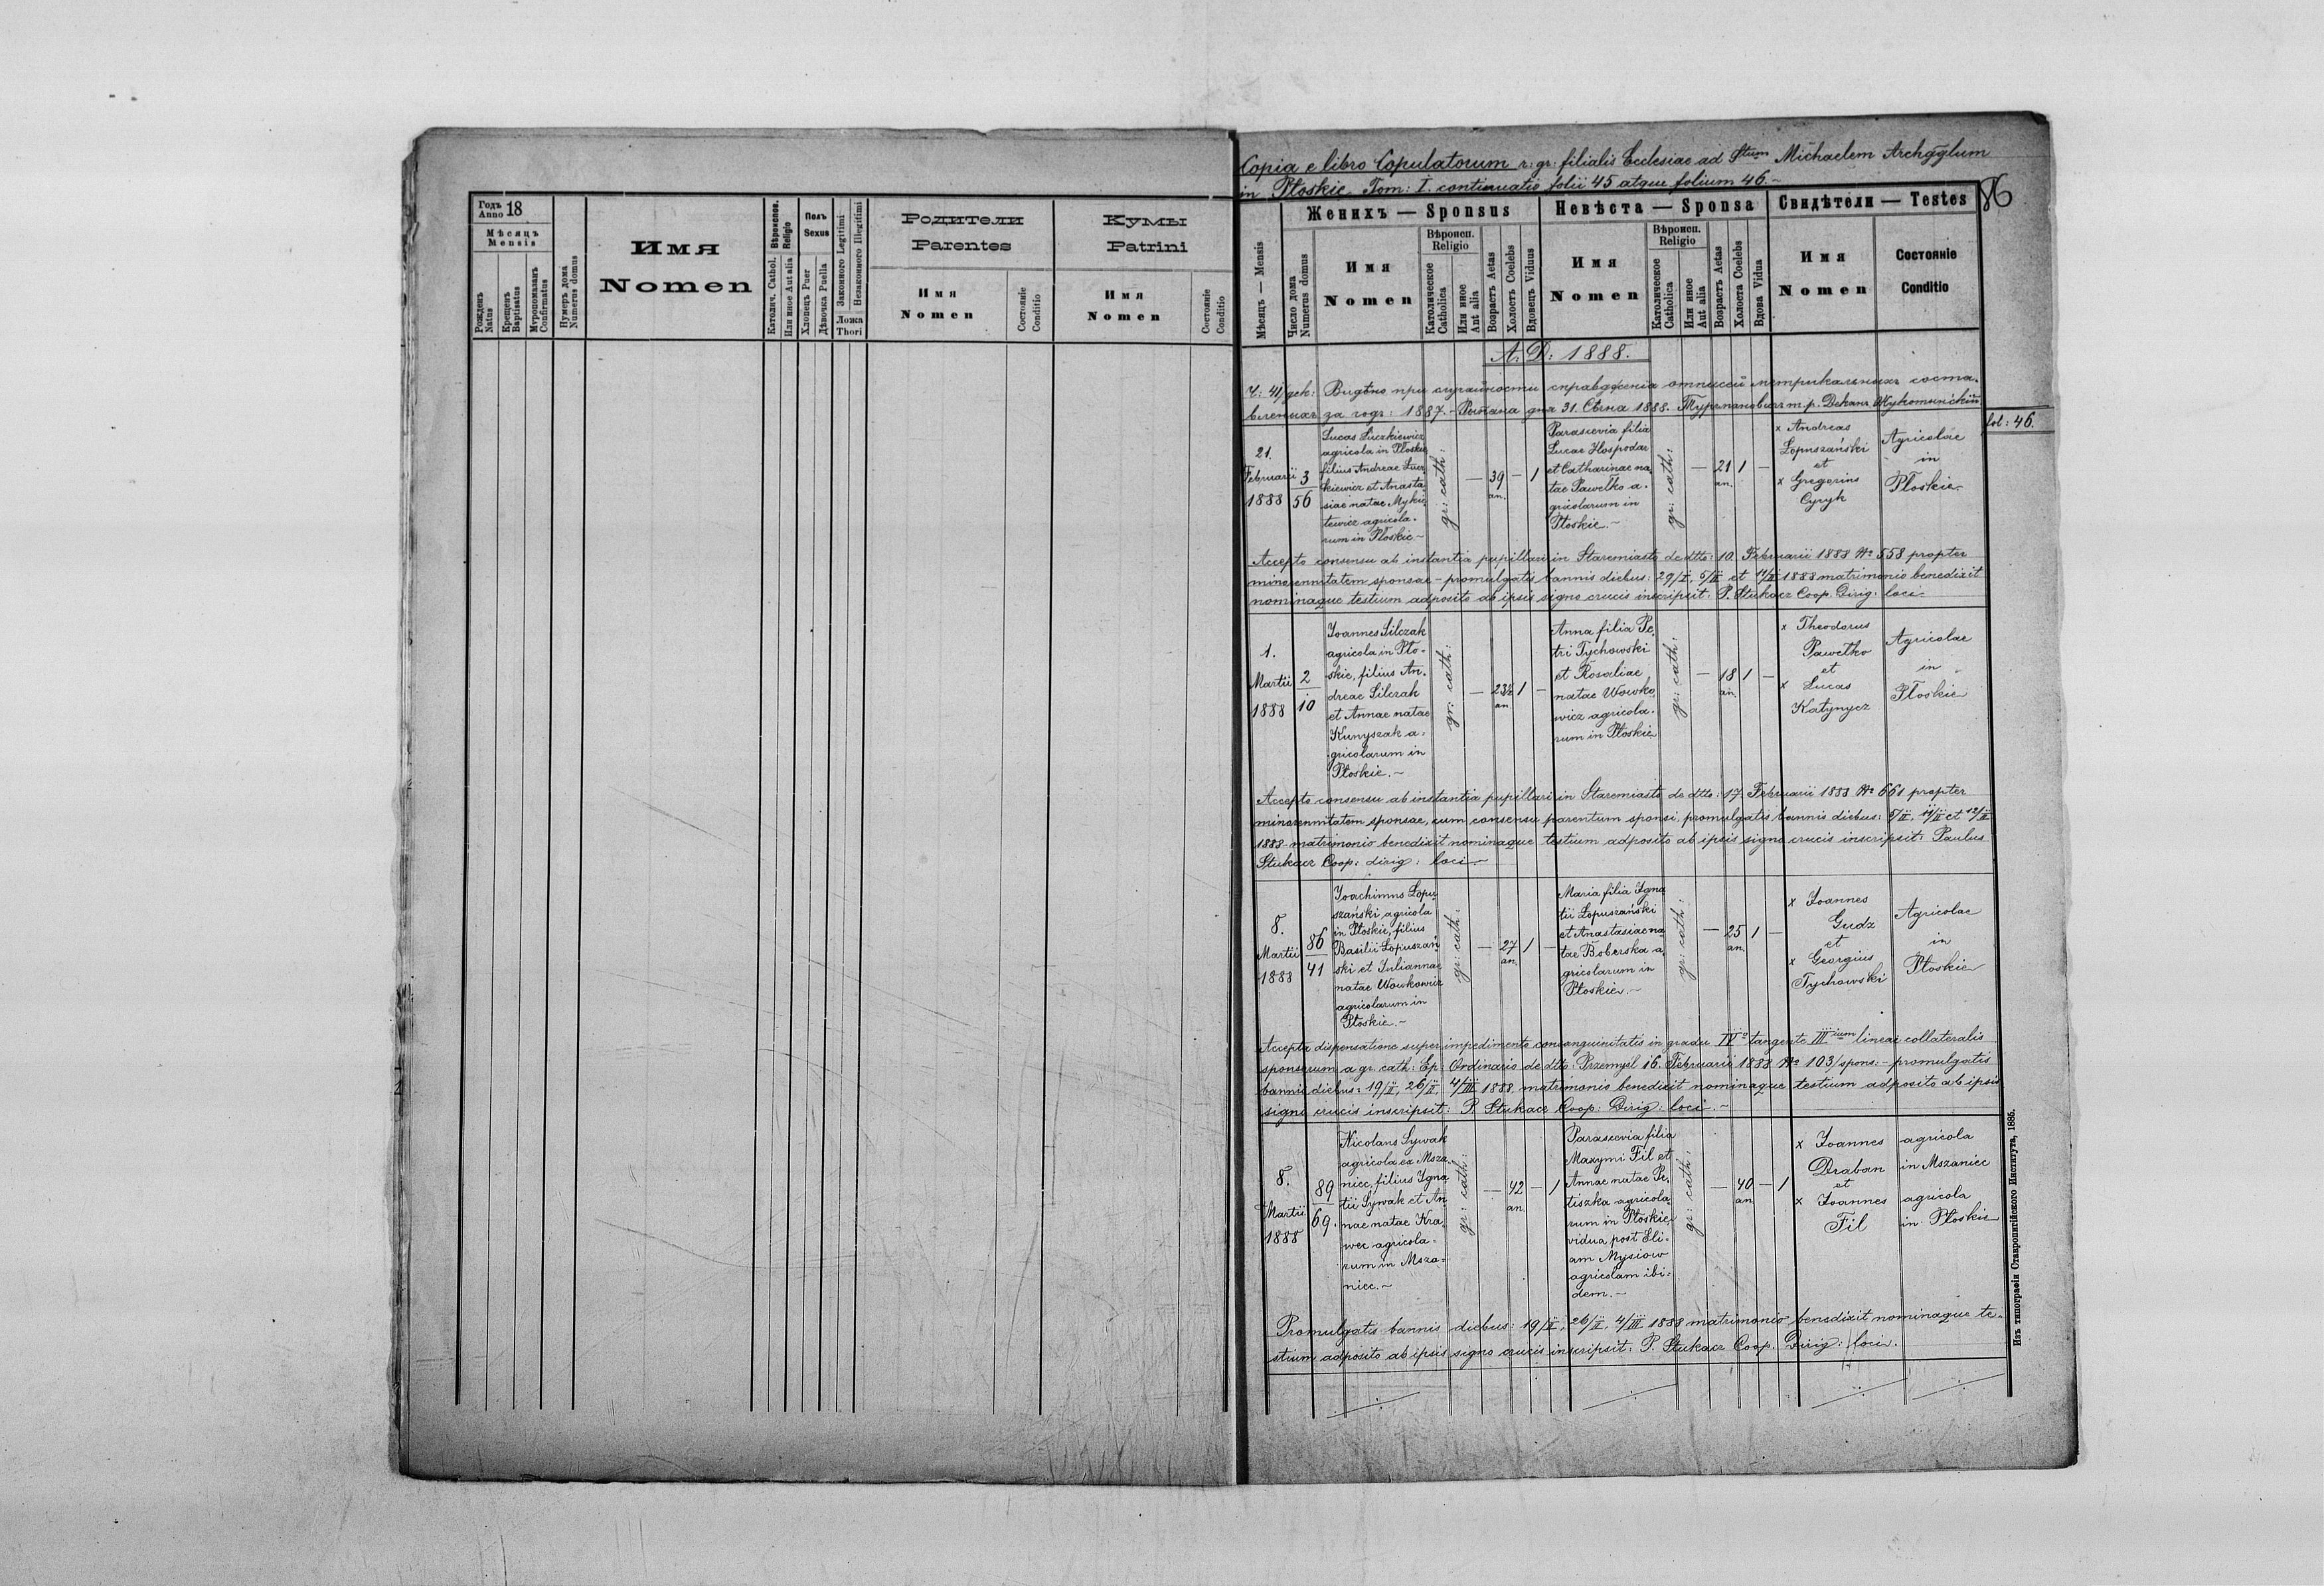 Годъ Anno 18
Мѣсяцъ
Mensis
Рожденъ
Natus
Крещенъ
Baptisatus
Мѵропомазанъ
Confirmatus
Нумеръ дома
Numerus domus
Имя
Nomen
Вѣроиспов.
Religio
Католич. Cathol.
Или иное Aut alia
Полъ
Sexus
Хлопецъ Puer
Дѣвочка Puella
Законного Legitimi
Незаконного Illegitimi
Ложа
Thori
Родители
Parentes
Имя
Nomen
Состояніе
Conditio
Кумы
Patrini
Имя
Nomen
Состояніе
Conditio
Copia e libro Copulatorum r: gr: filialis Ecclesiae ad Stum Michaelem Archaglum
in Płoskie. Tom: I. continuatio folii 45 atque folium 46.-
86
Мѣсяцъ — Mensis
Число дома
Numerus domus
Женихъ — Sponsus
Имя
Nomen
Вѣроисп.
Religio
Католическое
Catholica
Или иное
Aut alia
Возрастъ Aetas
Холостъ Coelebs
Вдовецъ Viduus
Невѣста — Sponsa
Имя
Nomen
Вѣроисп.
Religio
Католическое
Catholica
Или иное
Aut alia
Возрастъ Aetas
Холоста Coelebs
Вдова Vidua
Свидѣтели — Testes
Имя
Nomen
Состояніе
Conditio
A. D: 1888.
Ч: 41/дек: Видѣно при случайности справдженія отписей метрикальныхъ соста-
вленныхъ за годъ: 1887.- дня 31. Сѣчня 1888. м. р. Деканъ
fol: 46.
21.
Februarii
1888
3
56
Lucas Luczkiewicz
agricola in Płoskie
filius Andreae Lucz
kiewicz et Anasta
siae natae Myki
tewicz agricola-
rum in Płoskie -
gr: cath:
— 39 — 1
an.
Parascevia filia
Lucae Hospodar
et Catharinae na
tae Pawełko a-
gricolarum in
Płoskie. -
gr: cath:
— 21 1 —
an.
x Andreas
Łopuszański
et
x Gregorius
Cyryk
Agricolae
in
Płoskie
Accepto consensu ab instantia pupillari in Staremiasto de dtto: 10. Februarii 1888 No 558 propter
minorennitatem sponsae - promulgatis bannis diebus: 29/I, 5/II et 11/II 1888 matrimonio benedixit
nominaque testium adposito ab ipsis signo crucis inscripsit: P. Stukacz Coop. Dirig: loci -
1.
Martii
1888
2
10
Joannes Silczak
agricola in Pło-
skie, filius An-
dreae Silczak
et Annae natae
Kunyszak a-
gricolarum in
Płoskie. -
gr: cath:
— 23½ 1 —
an.
Anna filia Pe-
tri Tychowski
et Rosaliae
natae Wowko
wicz agricola-
rum in Płoskie
gr: cath:
— 18 1 —
an.
x Theodorus
Pawełko
et
x Lucas
Katynycz
Agricolae
in
Płoskie
Accepto consensu ab instantia pupillari in Staremiasto de dtto: 17. Februarii 1888 No 661 propter
minorennitatem sponsae, cum consensu parentum sponsi, promulgatis bannis diebus: 5/II. 11/II et 12/II
1888 matrimonio benedixit nominaque testium adposito ab ipsis signo crucis inscripsit: Paulus
Stukacz Coop: dirig: loci -
8.
Martii
1888
86
41
Joachimus Łopu
szański, agricola
in Płoskie, filius
Basilii Łopuszań
ski et Juliannae
natae Wowkowicz
agricolarum in
Płoskie. -
gr: cath:
— 27 1 —
an.
Maria filia Igna
tii Łopuszański
et Anastasiae na
tae Boberska a
gricolarum in
Płoskie. -
gr: cath:
— 25 1 —
an.
x Joannes
Gudz
et
x Georgius
Tychowski
Agricolae
in
Płoskie
Accepta dispensatione super impedimento consanguinitatis in gradu IVo tangente IIIium lineae collateralis
sponsorum a gr. cath: Ep: Ordinario de dtto: Przemyśl 16. Februarii 1888 No 103/spons: - promulgatis
bannis diebus: 19/II, 26/II, 4/III 1888. matrimonio benedixit nominaque testium adposito ab ipsis
signo crucis inscripsit: P. Stukacz Coop: Dirig: loci. -
8.
Martii
1888
89
69.
Nicolaus Sywak
agricola ex Msza
niec, filius Igna
tii Sywak et An
nae natae Kra
wec agricola-
rum in Msza-
niec. -
gr: cath:
— 42 — 1
an.
Parascevia filia
Maxymi Fil et
Annae natae Pe-
tiszka agricola
rum in Płoskie,
vidua post Eli-
am Mysiow
agricolam ibi-
dem. -
gr: cath:
— 40 — 1
an
x Joannes
Draban
et
x Joannes
Fil
agricola
in Mszaniec
agricola
in Płoskie
Promulgatis bannis diebus: 19/II, 26/II, 4/III 1888 matrimonio benedixit nominaque te-
stium adposito ab ipsis signo crucis inscripsit: P. Stukacz Coop. Dirig: loci.
Изъ типографіи Ставропигійского Института, 1885.